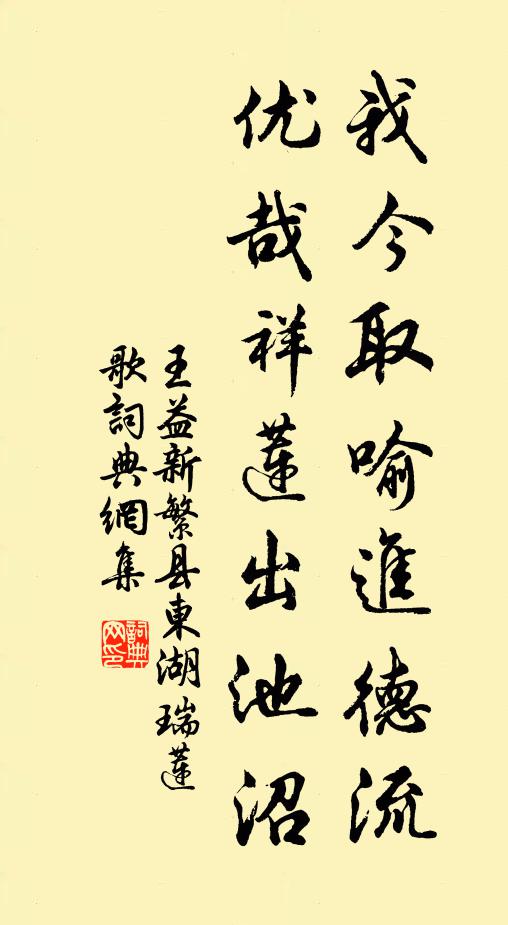 我今取喻進德流
优哉祥蓮出池沼
王益新繁县東湖瑞蓮
歌詞典網集
詞典网印